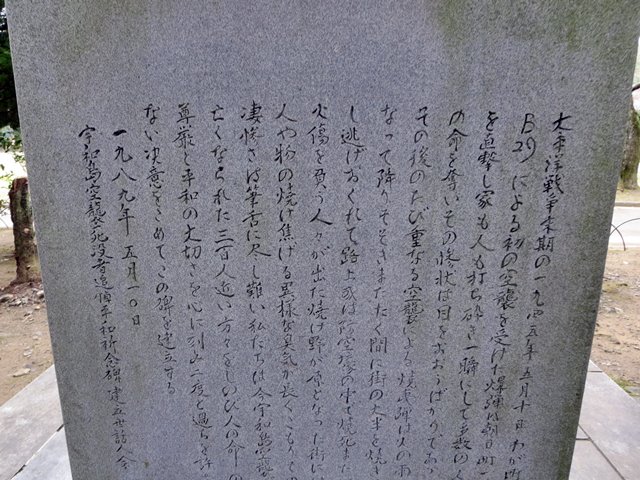 太平洋戦争末期の一九四五年五月十日わが町
B29による初の空襲を受けた爆弾は朝日町
を直撃し家も人も打ち砕き一瞬にして多数の
の命を奪いその惨状は目をおおうばかりであ
その後のたび重なる空襲による焼夷弾は火の雨
なって降りそそぎまたたく間に街の大半を焼き
し逃げおくれて路上或は防空壕の中で焼死また
火傷を負う人々が出た焼け野が原となった街に
人や物の焼け焦げる異様な臭気が長くこもりその
凄惨さは筆舌に尽し難い私たちは今宇和島空襲
亡くなられた三百人近い方々をしのび人の命の
尊厳と平和の大切さを心に刻み二度と過ちを許
ない決意をこめてこの碑を建立する
一九八九年 五月一〇日
宇和島空襲死没者追悼平和祈念碑 建立世話人会